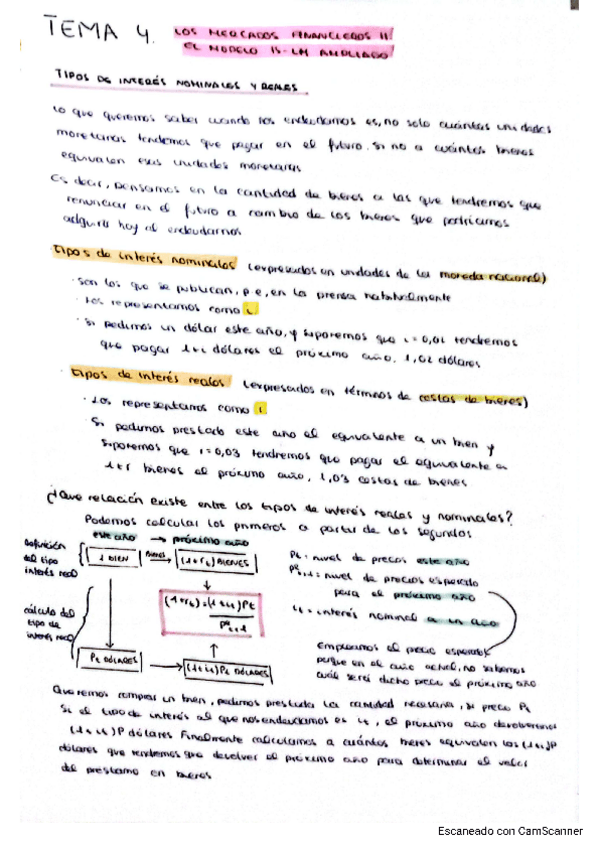 TEMA 4. LOS MERCADOS FINANCIEROS II
EL MODELO IS-LM AMPLIADO
TIPOS DE INTERÉS NOMINALES Y REALES
Lo que queremos saber cuando nos endeudamos es, no solo cuántas unidades
monetarias tendremos que pagar en el futuro. Si no a cuántos bienes
equivalen esas unidades monetarias
Es decir, pensamos en la cantidad de bienes a las que tendremos que
renunciar en el futuro a cambio de los bienes que podríamos
adquirir hoy al endeudarnos
tipos de interés nominales (expresados en unidades de la moneda nacional)
· Son los que se publican, p e, en la prensa
· Los representamos como i
· Si pedimos un dólar este año, y suponemos que i = 0,02 tendremos
que pagar 1+i dólares el próximo año. 1,02 dólares
· tipos de interés reales (expresados en términos de cestas de bienes)
· Los representamos como
Si pedimos prestado este año el equivalente a un bien y
suponemos que r=0,03 tendremos que pagar el equivalente a
1+r bienes el próximo año, 1,03 cestas de bienes
¿Que relación existe entre los tipos de interés reales y nominales?
Podemos calcular los primeros a partir de los segundos
este año → próximo año
Definición del tipo interés real
1 BIEN
Bienes
(1+rt) BIENES
Pt: nivel de precios este año
Pet+1 = nivel de precios esperado
para el próximo año
it = interés nominal a un año
(1+rt)=(1+it)Pt
Pet+1
cálculo del tipo de interés real
Pt DÓLARES
(1+it)Pt DÓLARES
Empleamos el precio esperado
porque en el año actual, no sabemos
cuál será dicho precio el próximo año
Queremos comprar un bien, pedimos prestada la cantidad necesaria, su precio Pt
Si el tipo de interés al que nos endeudamos es it, el próximo año devolveremos
(1+it)P dólares. Finalmente calculamos a cuántos bienes equivalen los (1+it)P
dólares que tendremos que devolver el próximo año para determinar el valor
del préstamo en bienes
Escaneado con CamScanner